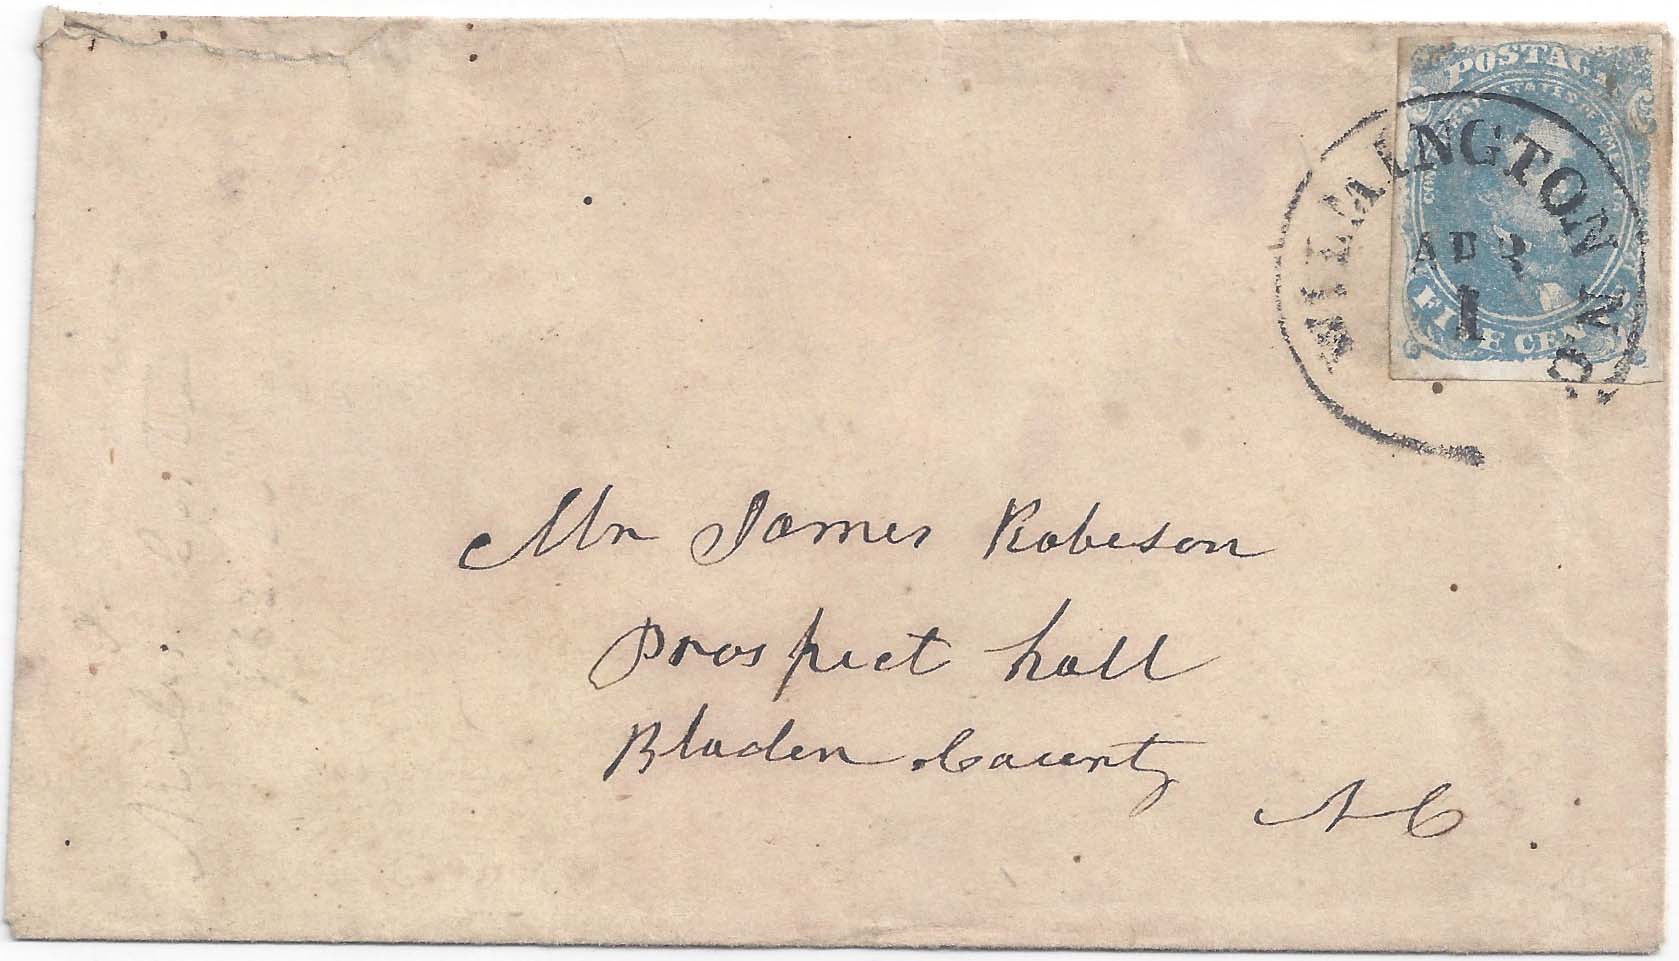 POSTAGE
STATES OF
WILMINGTON N.C.
APR
1
FIVE CENTS
Mr James Robeson
Prospect hall
Bladen County
N C